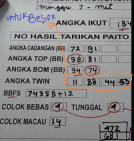 minggu 7 - mei
untuk Besok
ANGKA IKUT 184
NO HASIL TARIKAN PAITO
ANGKA CADANGAN (BB) 72 91
ANGKA TOP (BB) 58 81
ANGKA BOM (BB) 34 74
ANGKA TWIN 11 88 44 33
BBFS 74358+12
COLOK BEBAS 4 TUNGGAL 9
COLOK MACAU 14
472
681